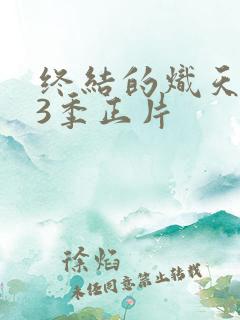 终结的炽天
3季正片
徐焰
未经同意禁止转载